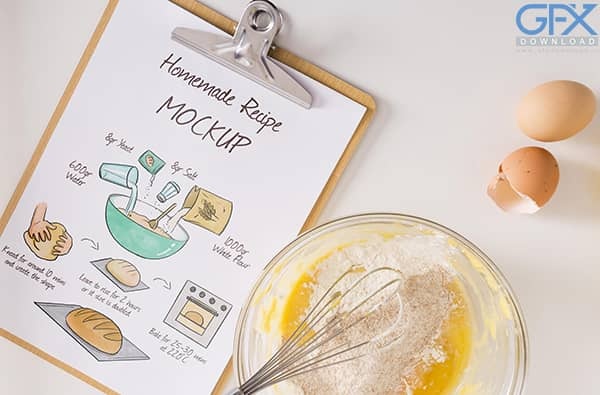 GFX
DOWNLOAD
Homemade Recipe
MOCKUP
8gr Yeast
8gr Salt
600gr
Water
1000gr
White Flour
Knead for around 10 mins
and create the shape
Leave to rise for 2 hours
or it size is doubled
Bake for 25-30 mins
at 220°C